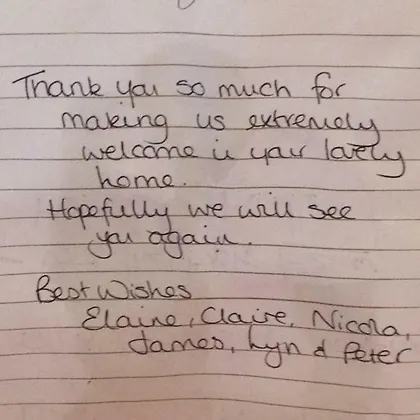 Thank you so much for
making us extremely
welcome in your lovely
home.
Hopefully we will see
you again.
Best Wishes
Elaine, Claire, Nicola,
James, Lyn & Peter